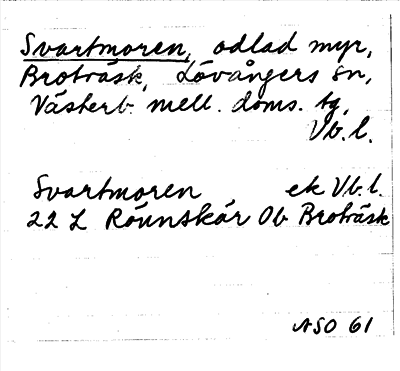 Svartmoren, odlad myr,
Broträsk, Lövångers sn,
Västerb. mell. doms. tg,
Vb.l.
Svartmoren ek Vb.l.
22 L Rönnskär Ob Broträsk
ASO 61